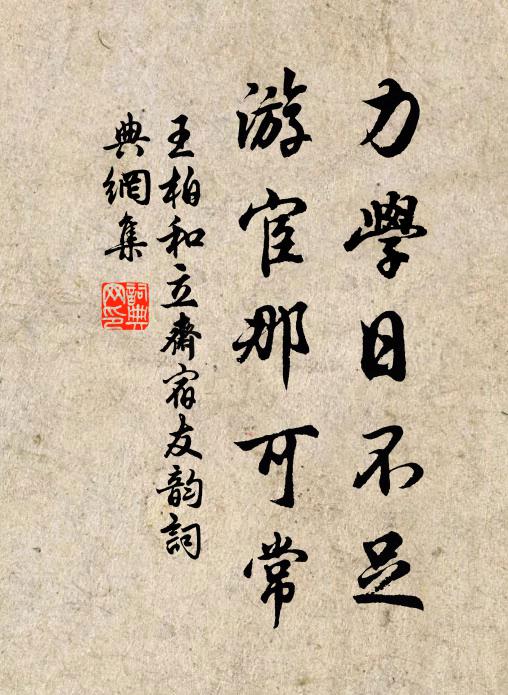 力學日不足
游宦那可常
王柏和立齋宿友韵詞
典網集
詞典網印